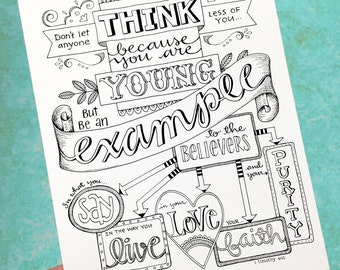 Don't let
anyone
THINK
LESS OF
YOU...
because
you are
YOUNG
But
BE an
example
to the
BELIEVERS
in what you
SAY
IN THE WAY YOU
live
in your
LOVE
YOUR
faith
and your
PURITY
1 timothy 4:12